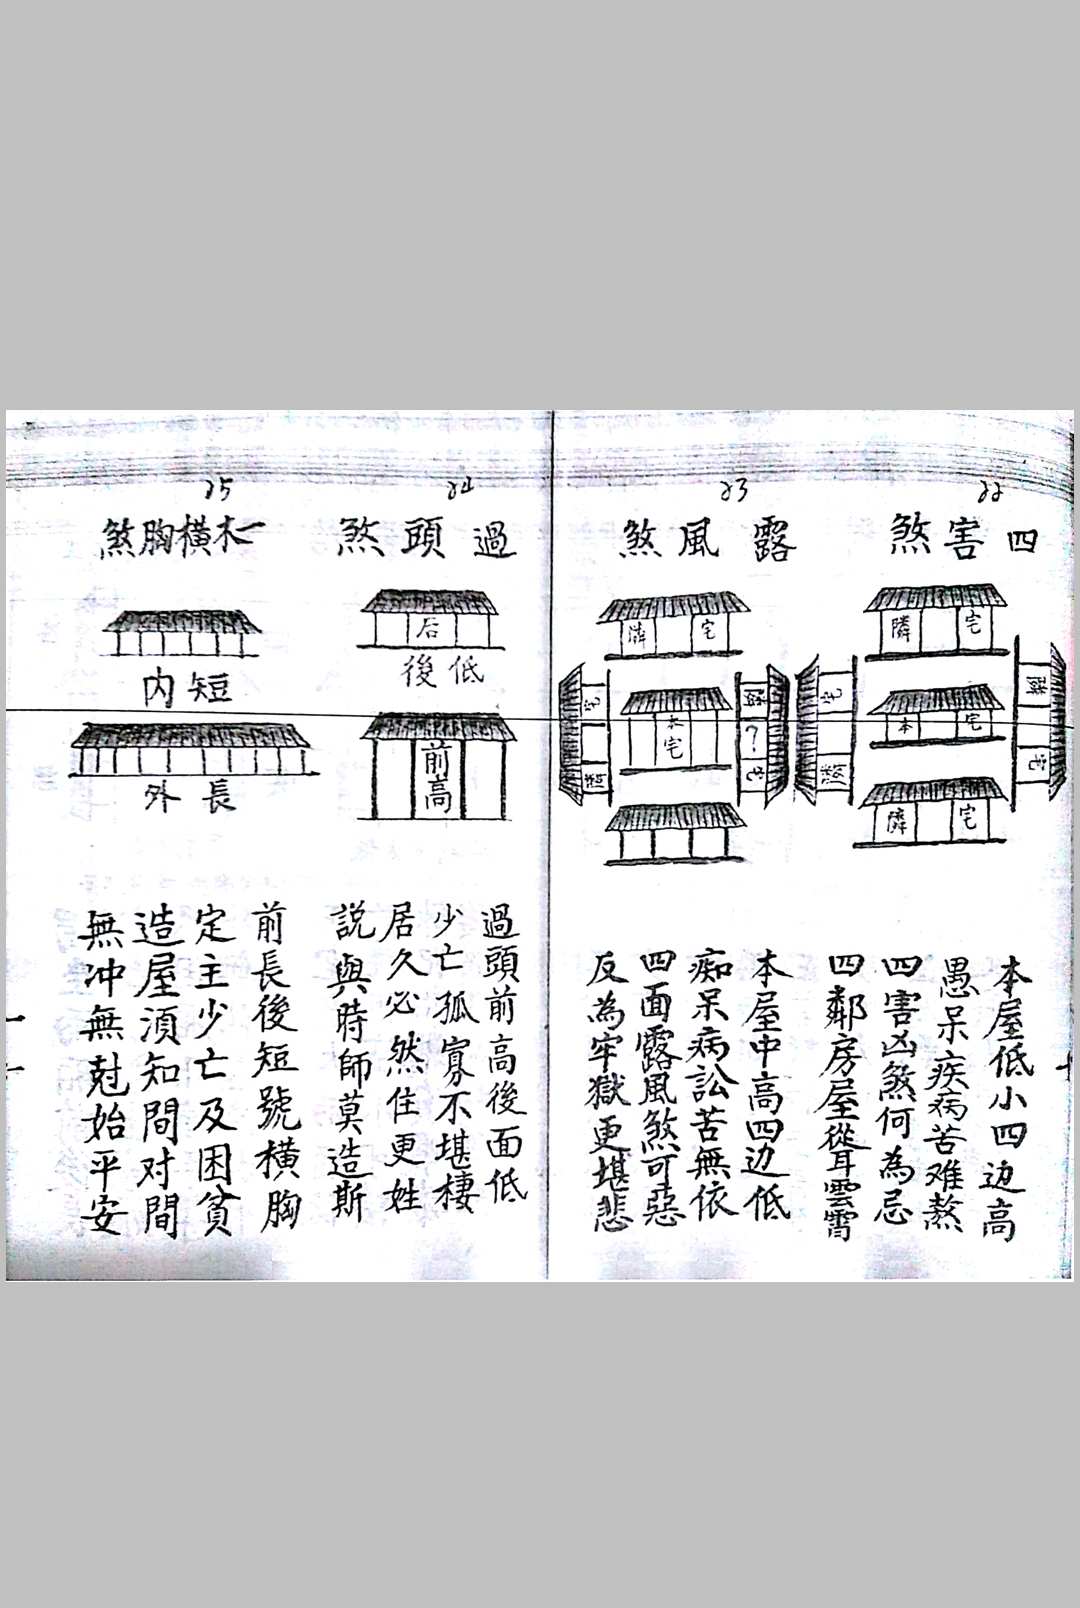 22
四害煞
隣宅
隣宅
本宅
宅隣
隣宅
本屋低小四边高
愚呆疾病苦难熬
四害凶煞何為忌
四鄰房屋從耳雲霄
23
露風煞
隣宅
宅隣
本宅
隣?宅
本屋中高四边低
痴呆病訟苦無依
四面露風煞可惡
反為牢獄更堪悲
24
過頭煞
后
後低
前高
過頭前高後面低
少亡孤寡不堪棲
居久必然住更姓
説與時師莫造斯
25
一木横胸煞
内短
外長
前長後短號橫胸
定主少亡及困貧
造屋須知間对間
無冲無尅始平安